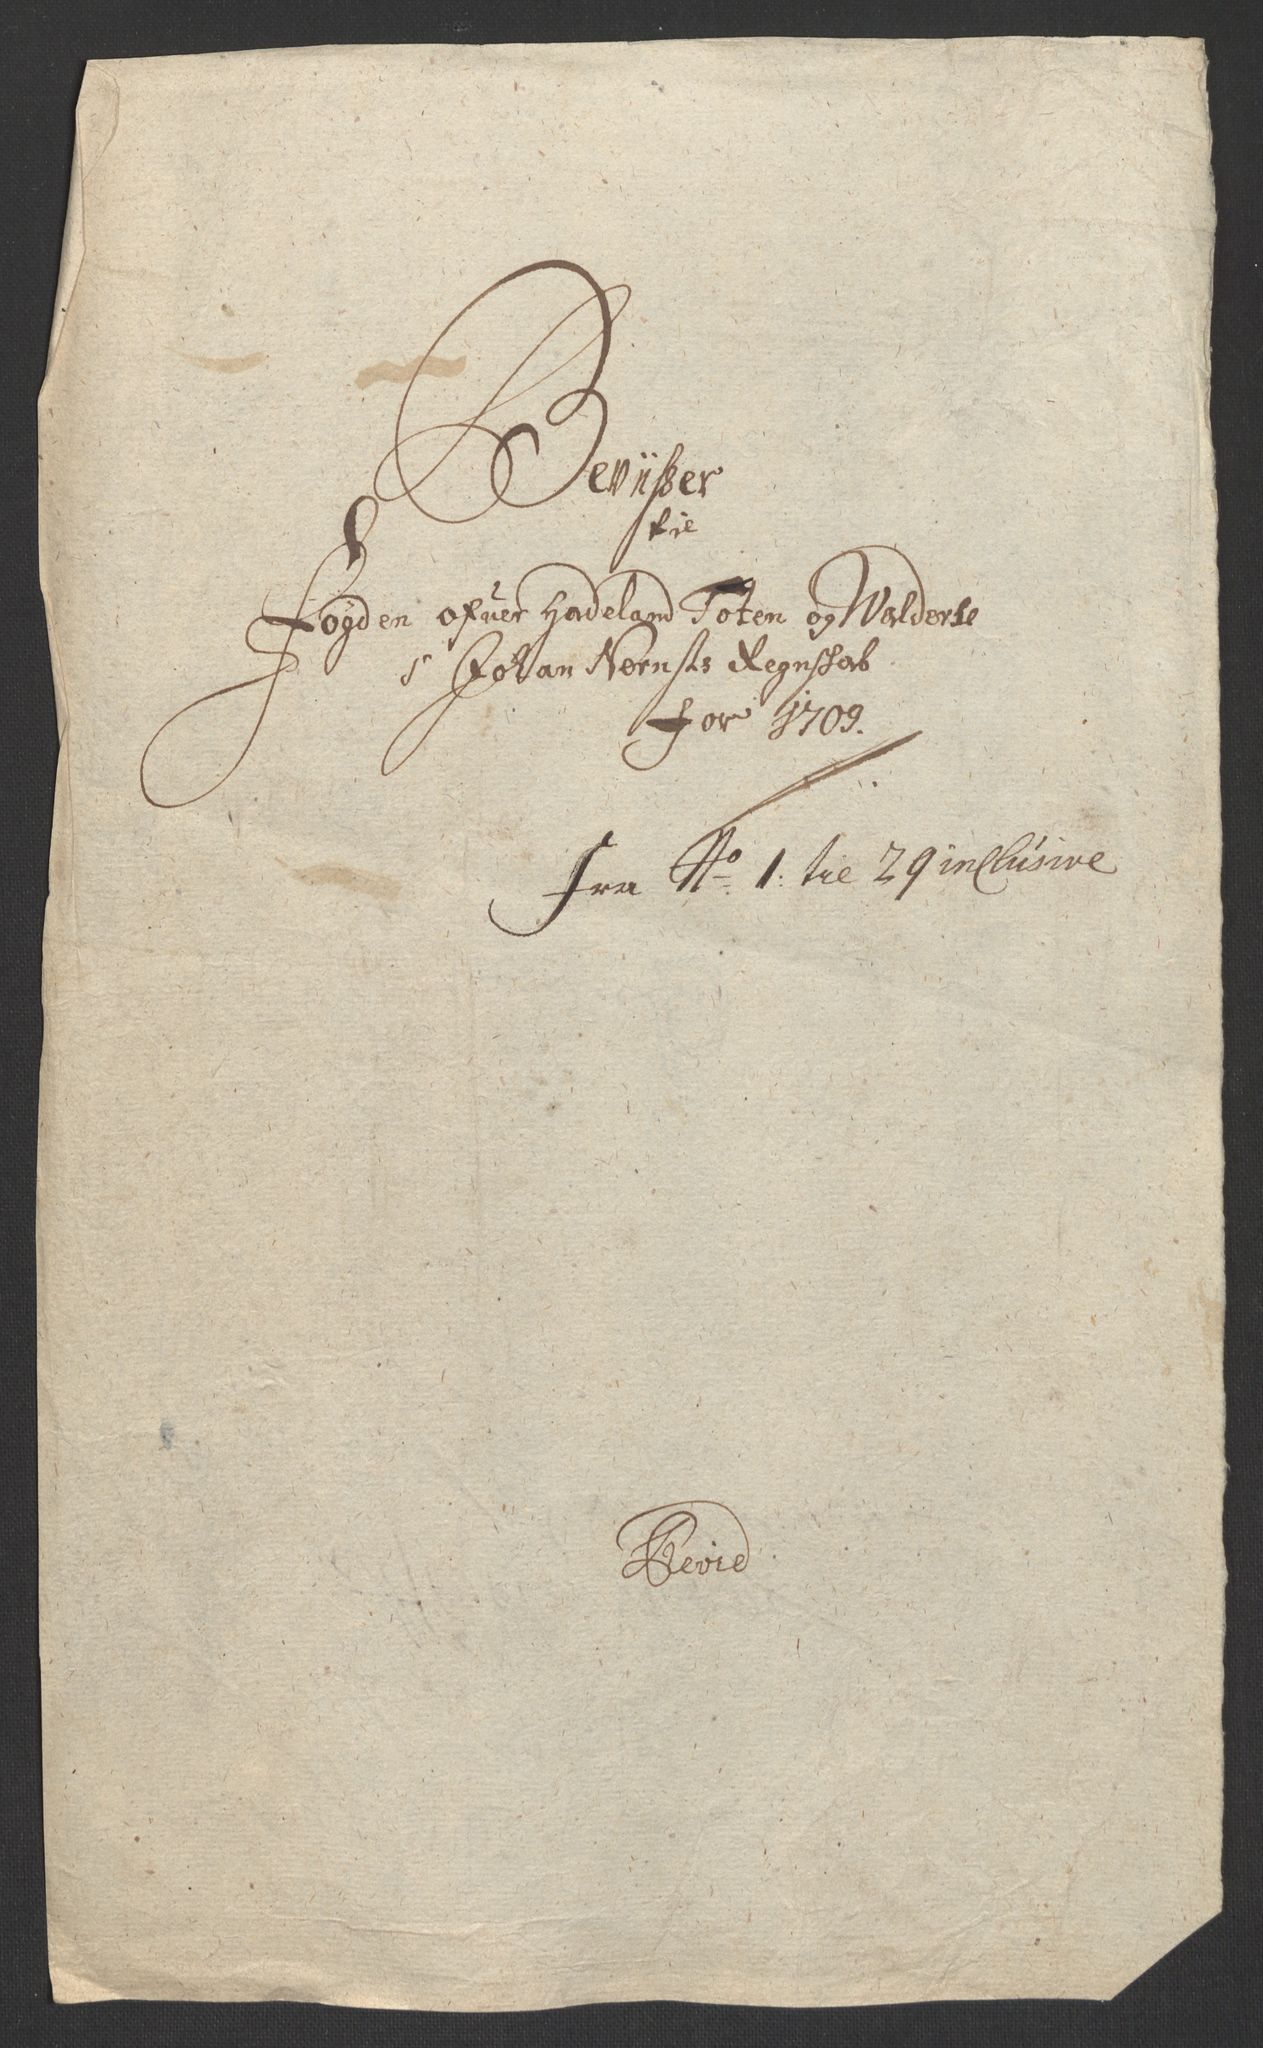 Bevijßer
til
Fogden ofuer Hadeland Toten og Walders
Sr Johan Nørnsts Regnskab
for 1709.
fra No 1: til 29 inclusive
Revid